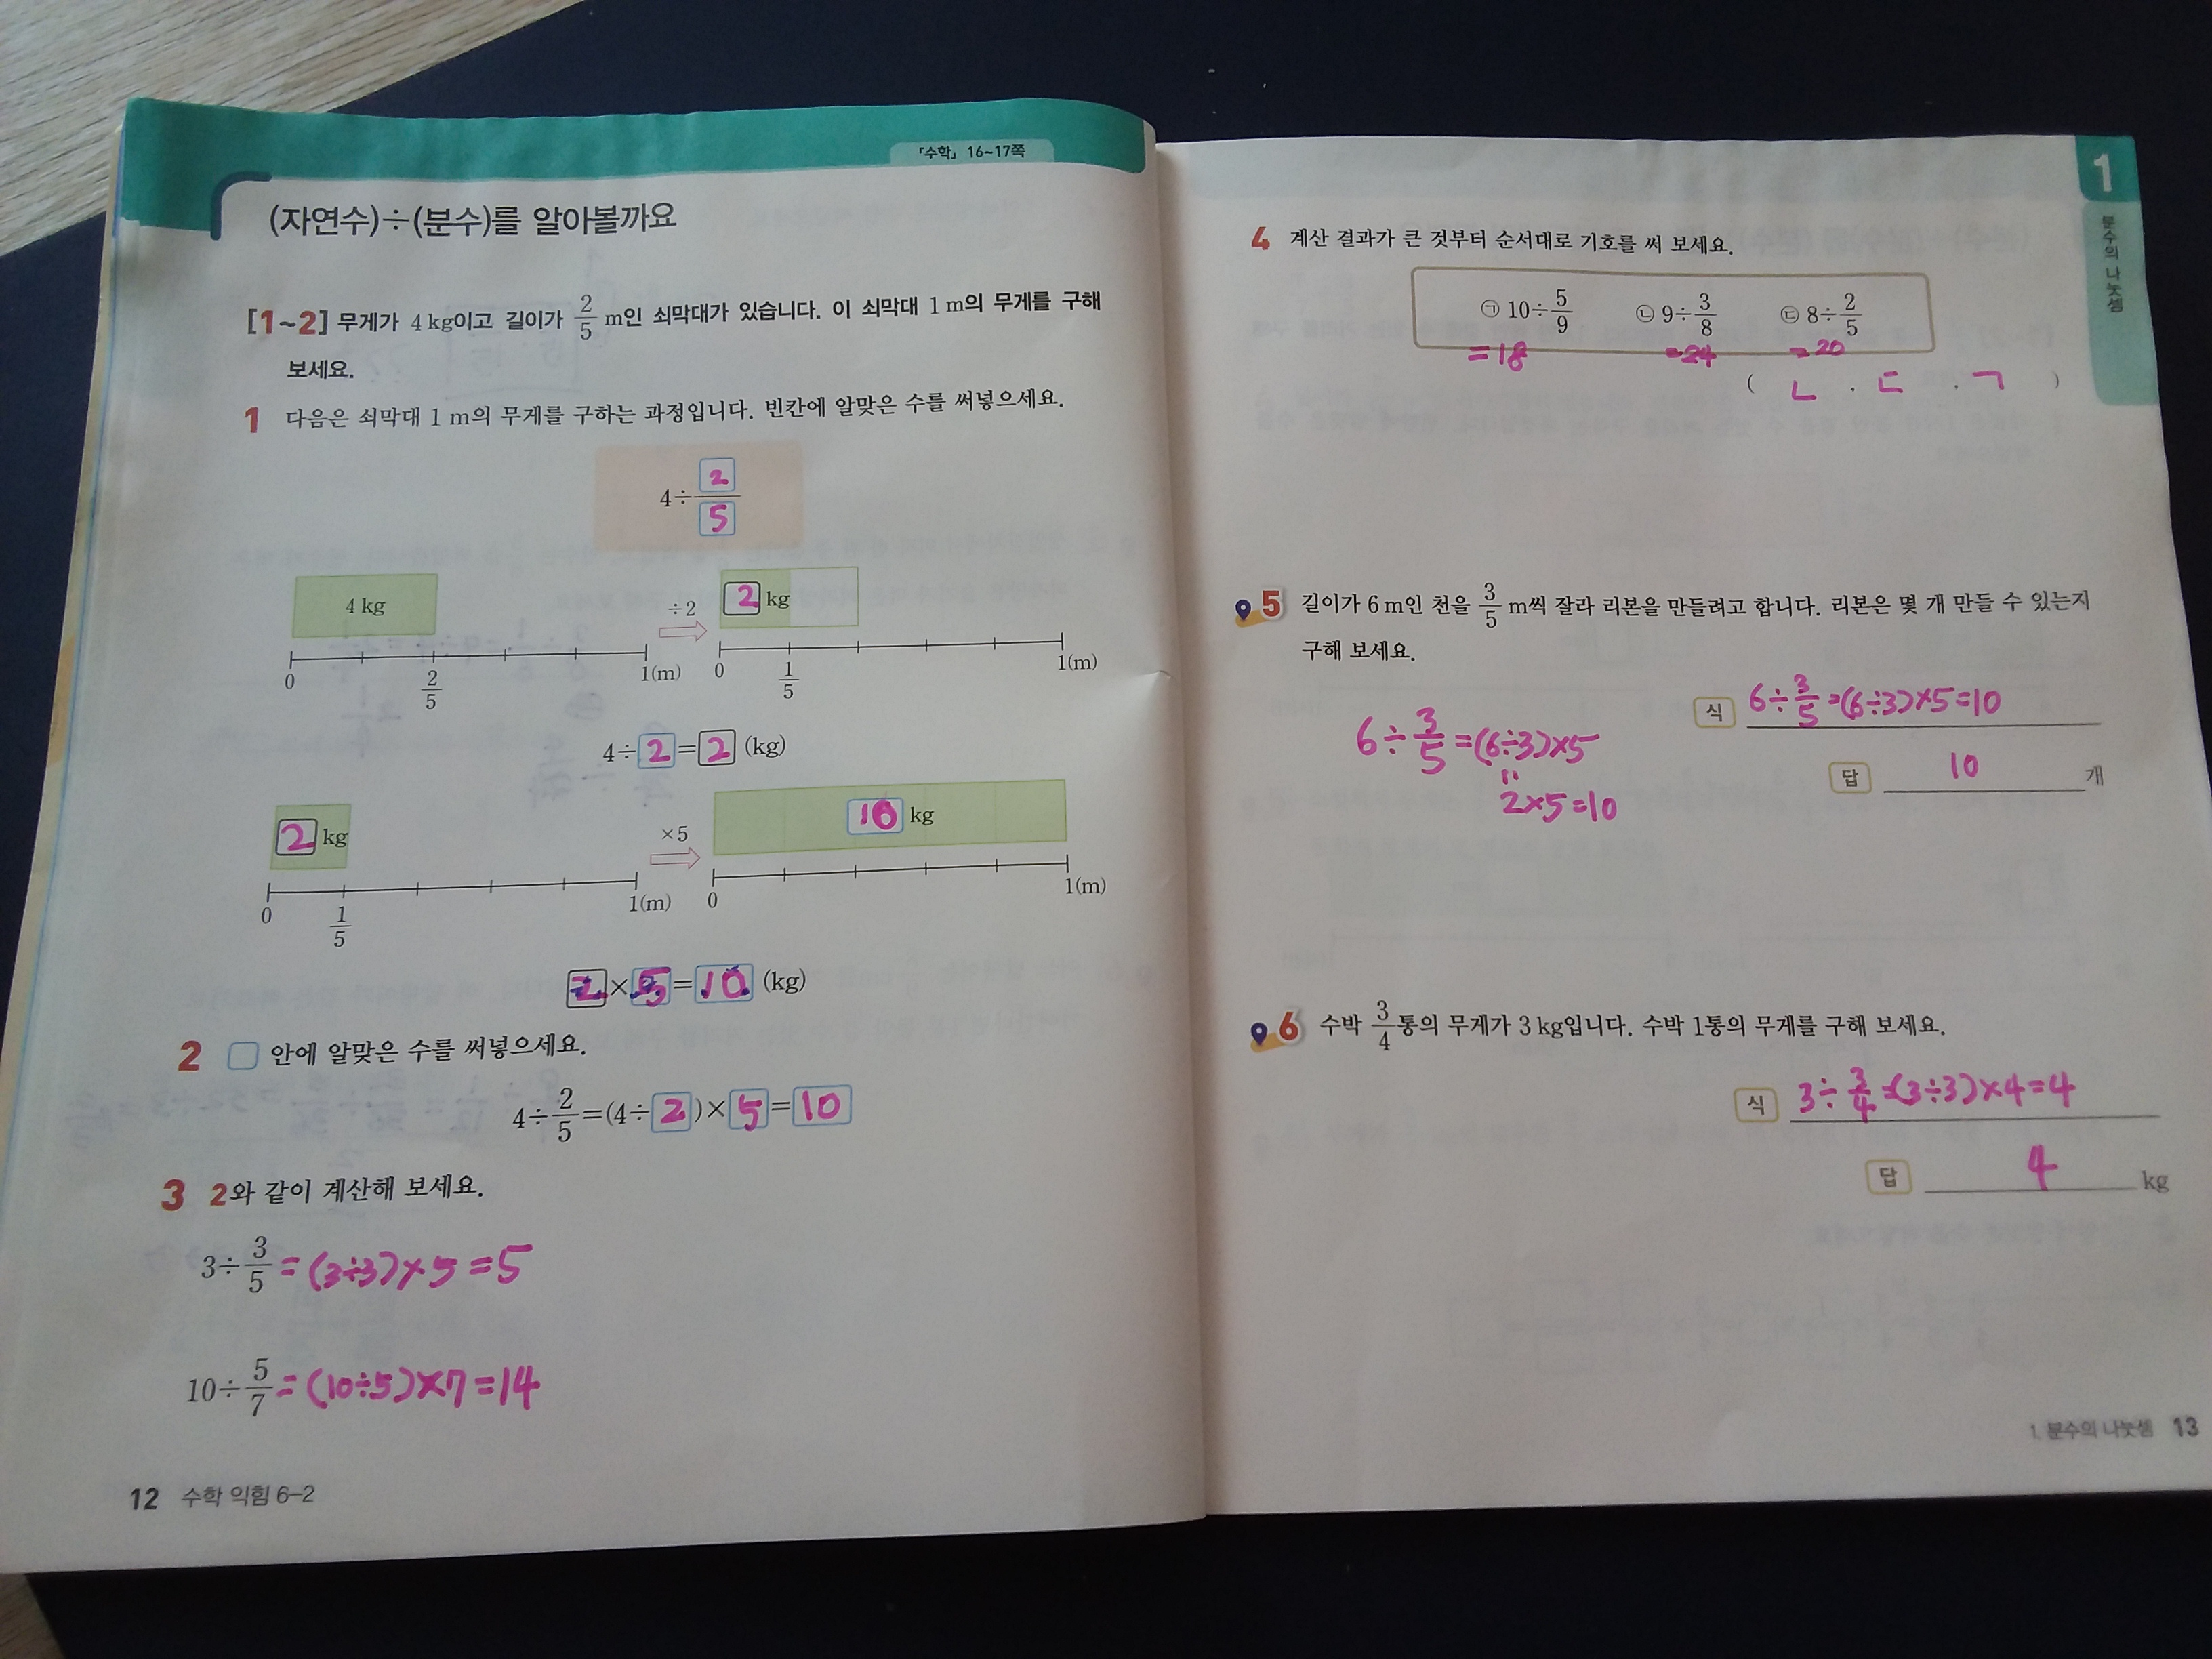 「수학」 16~17쪽
(자연수)÷(분수)를 알아볼까요
[1~2] 무게가 4 kg이고 길이가 2/5 m인 쇠막대가 있습니다. 이 쇠막대 1 m의 무게를 구해
보세요.
1 다음은 쇠막대 1 m의 무게를 구하는 과정입니다. 빈칸에 알맞은 수를 써넣으세요.
4÷2/5
4 kg ÷2 2 kg
0 2/5 1(m) 0 1/5 1(m)
4÷2=2 (kg)
2 kg ×5 10 kg
0 1/5 1(m) 0 1(m)
2×5=10 (kg)
2 □ 안에 알맞은 수를 써넣으세요.
4÷2/5=(4÷2)×5=10
3 2와 같이 계산해 보세요.
3÷3/5=(3÷3)×5=5
10÷5/7=(10÷5)×7=14
12 수학 익힘 6-2
1
분수의 나눗셈
4 계산 결과가 큰 것부터 순서대로 기호를 써 보세요.
㉠ 10÷5/9 ㉡ 9÷3/8 ㉢ 8÷2/5
=18 =24 =20
( ㄴ . ㄷ . ㄱ )
5 길이가 6 m인 천을 3/5 m씩 잘라 리본을 만들려고 합니다. 리본은 몇 개 만들 수 있는지
구해 보세요.
6÷3/5=(6÷3)×5
2×5=10
식 6÷3/5=(6÷3)×5=10
답 10 개
6 수박 3/4통의 무게가 3 kg입니다. 수박 1통의 무게를 구해 보세요.
식 3÷3/4=(3÷3)×4=4
답 4 kg
1. 분수의 나눗셈 13